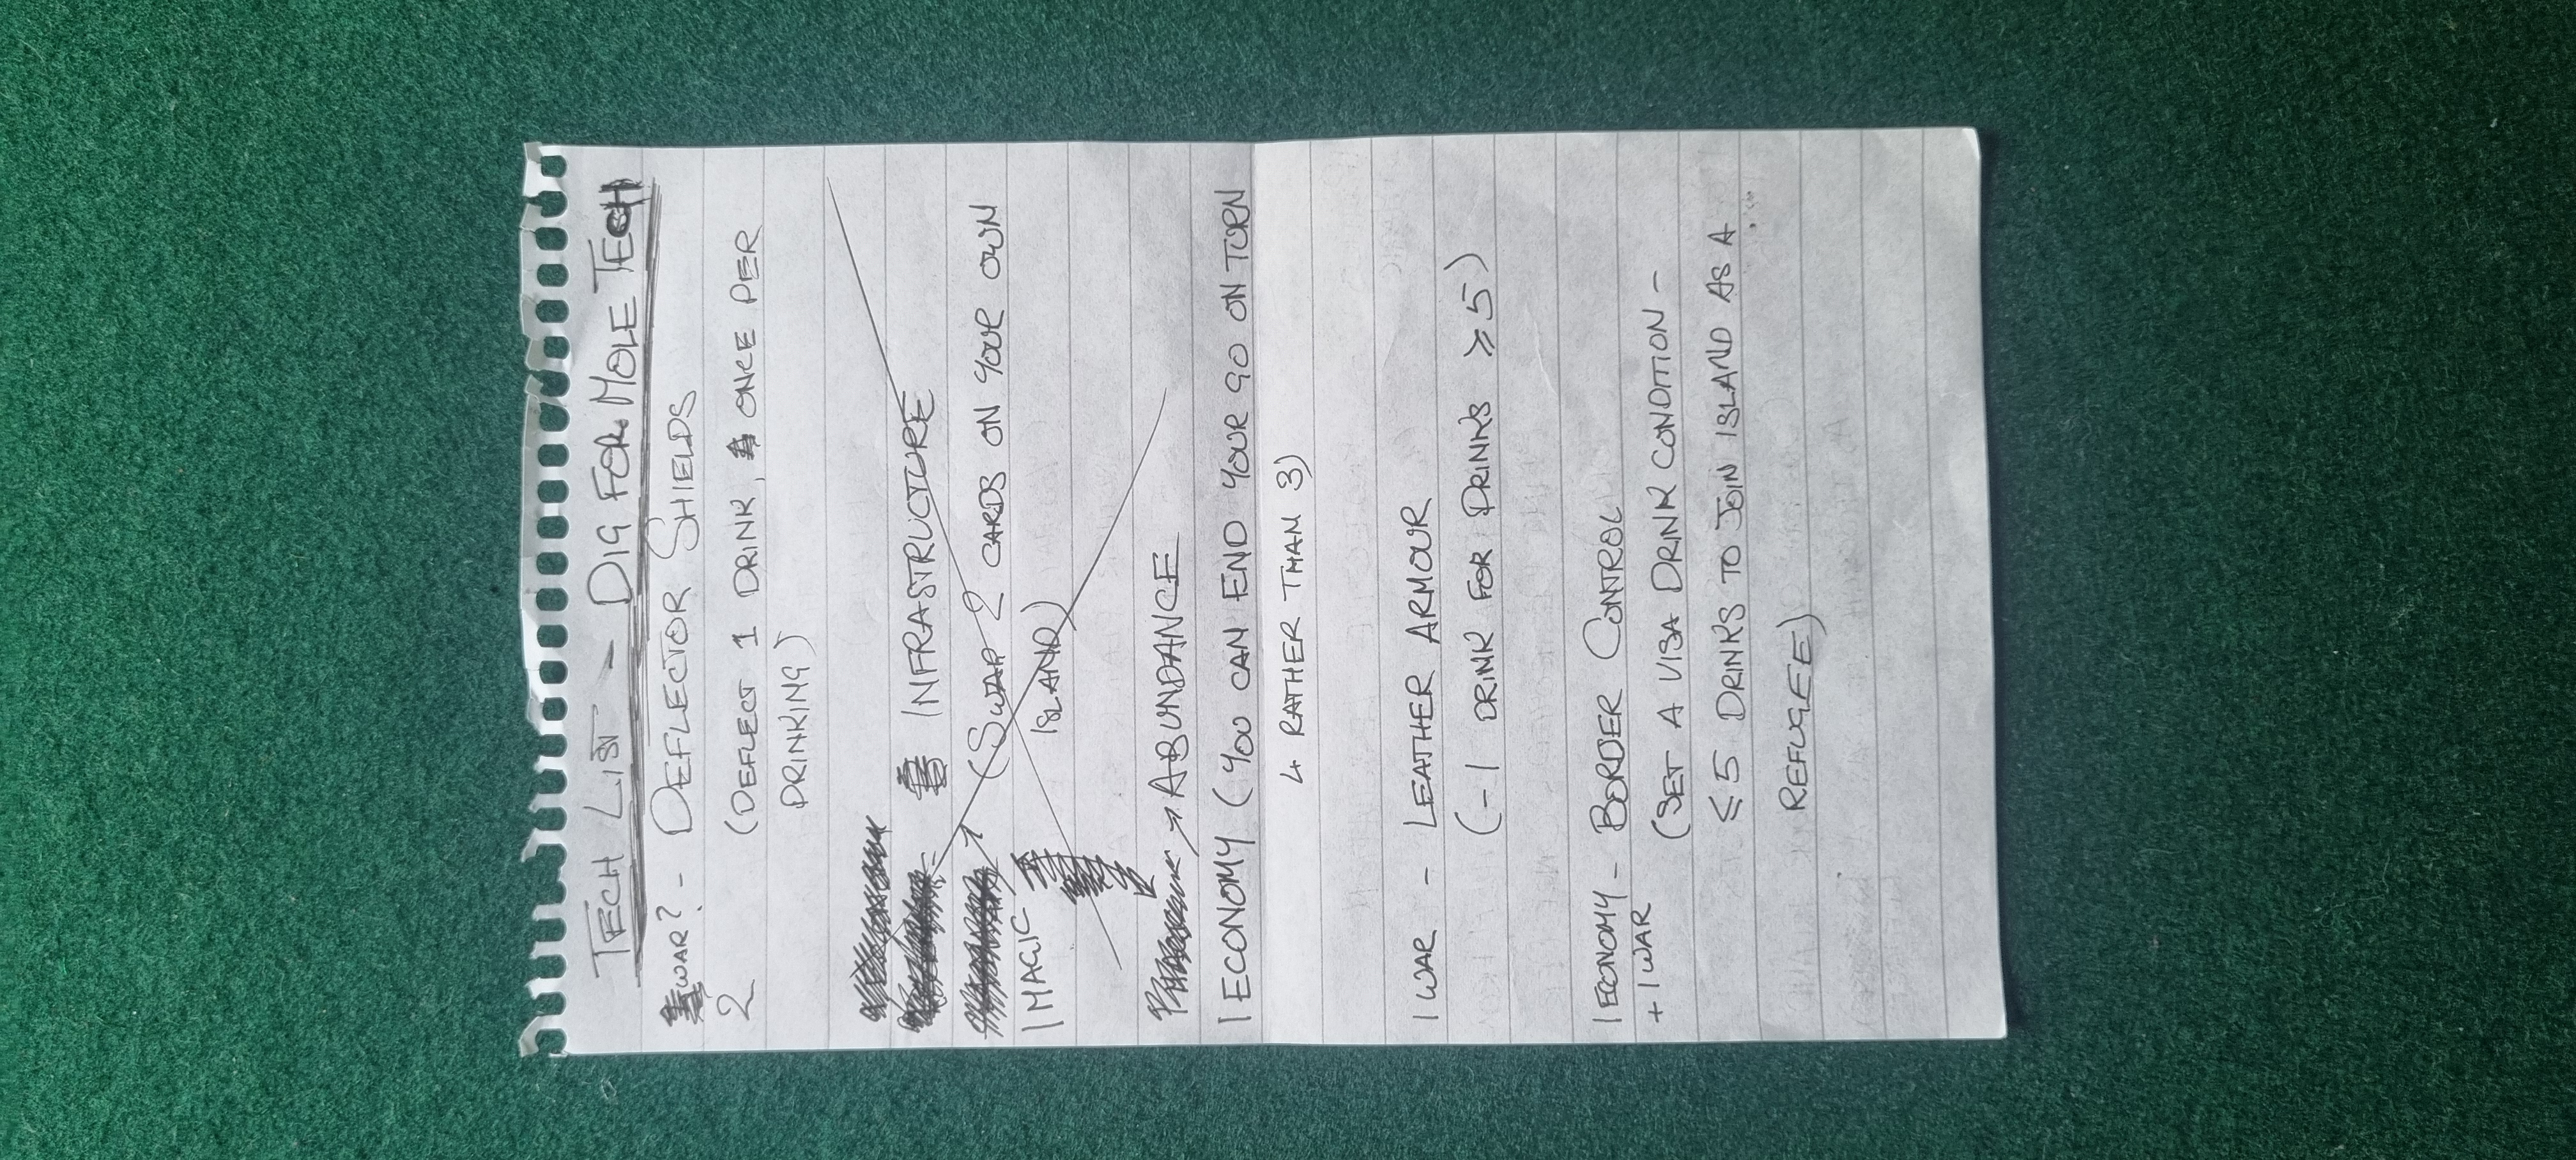 TECH LIST - DIG FOR MOLE TECH
WAR? - DEFLECTOR SHIELDS
2 (DEFLECT 1 DRINK, ONCE PER
DRINKING)
INFRASTRUCTURE
(SWAP 2 CARDS ON YOUR OWN
1 MAGIC ISLAND)
→ ABUNDANCE
1 ECONOMY (YOU CAN END YOUR GO ON TURN
4 RATHER THAN 3)
1 WAR - LEATHER ARMOUR
(-1 DRINK FOR DRINKS ≥ 5)
1 ECONOMY - BORDER CONTROL
+ 1 WAR (SET A VISA DRINK CONDITION -
≤ 5 DRINKS TO JOIN ISLAND AS A
REFUGEE)